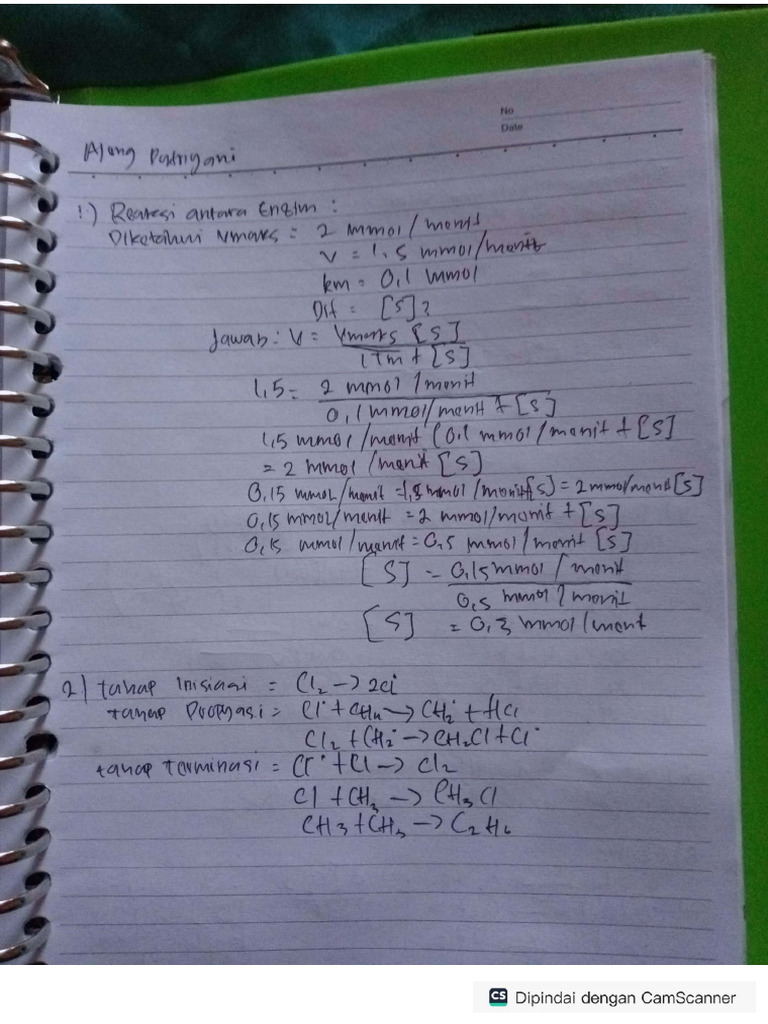 No
Date
Ajeng
1.) Reaksi antara Enzim :
Diketahui Vmaks = 2 mmol/menit
V = 1,5 mmol/menit
km = 0,1 mmol
Dit = [S]?
Jawab : V = Vmaks [S]
Km + [S]
1,5 = 2 mmol / menit
0,1 mmol/menit + [S]
1,5 mmol / menit (0,1 mmol / menit + [S]
= 2 mmol / menit [S]
0,15 mmol/menit = 1,5 mmol / menit [S) = 2 mmol/menit [S]
0,15 mmol/menit = 2 mmol/menit + [S]
0,15 mmol / menit = 0,5 mmol / menit [S]
[S] = 0,15 mmol / menit
0,5 mmol / menit
[S] = 0,3 mmol / menit
2) tahap Inisiasi = Cl₂ → 2Cl
tahap = Cl˙ + CH₄ → CH₂˙ + HCl
Cl₂ + CH₂˙ → CH₂Cl + Cl˙
tahap terminasi = Cl˙ + Cl → Cl₂
Cl + CH₃ → CH₃Cl
CH3 + CH₃ → C₂H₆
CS Dipindai dengan CamScanner